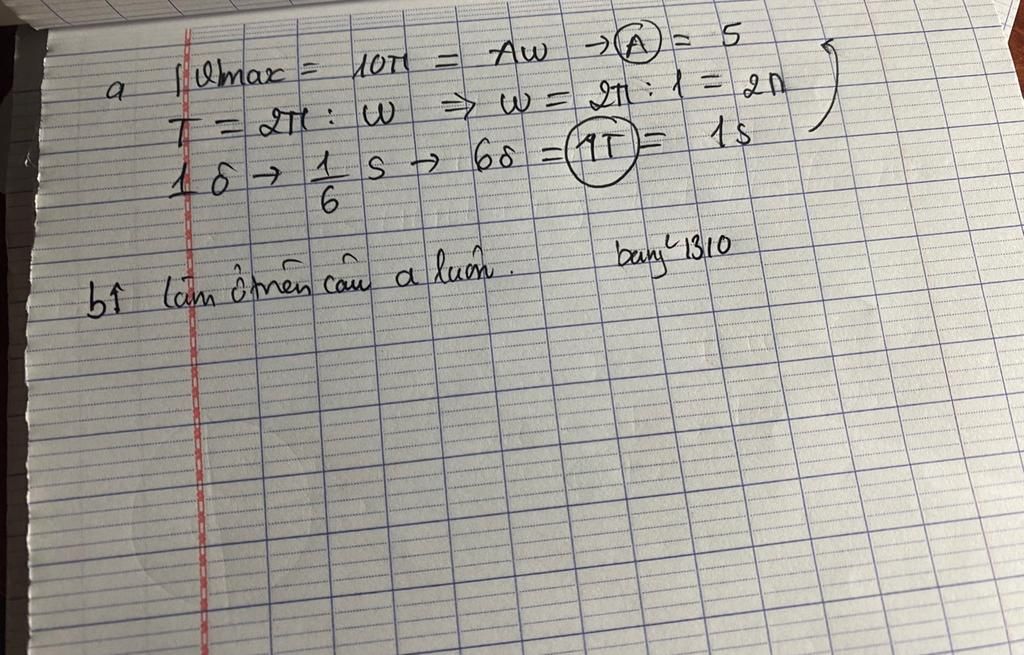 a | vmax = 10π = Aω → A = 5
T = 2π : ω ⇒ ω = 2π : 1 = 2π
1 ô → 1/6 s → 6ô = 1T = 1s
b, làm ở trên câu a luôn. 1310